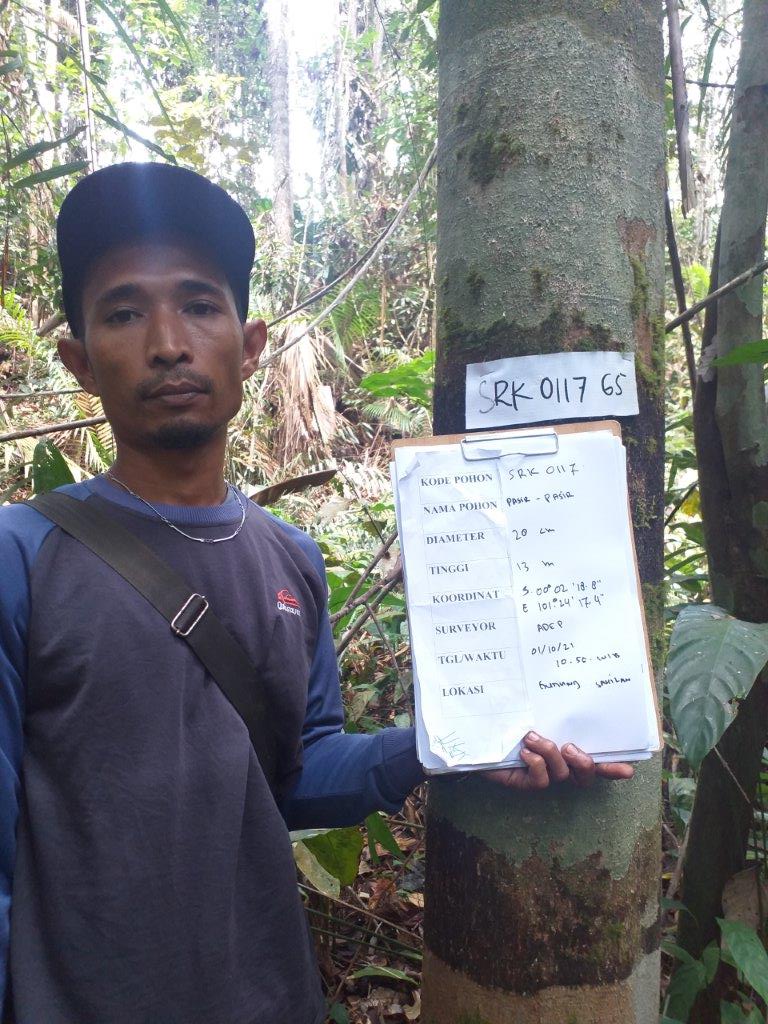 SRK 0117 65
KODE POHON SRK 0117
NAMA POHON PASIR - PASIR
DIAMETER 20 cm
TINGGI 13 m
KOORDINAT S. 00° 02' 18.8"
E 101° 24' 17.4"
SURVEYOR ADEP
TGL/WAKTU 01/10/21
10.50 WIB
LOKASI